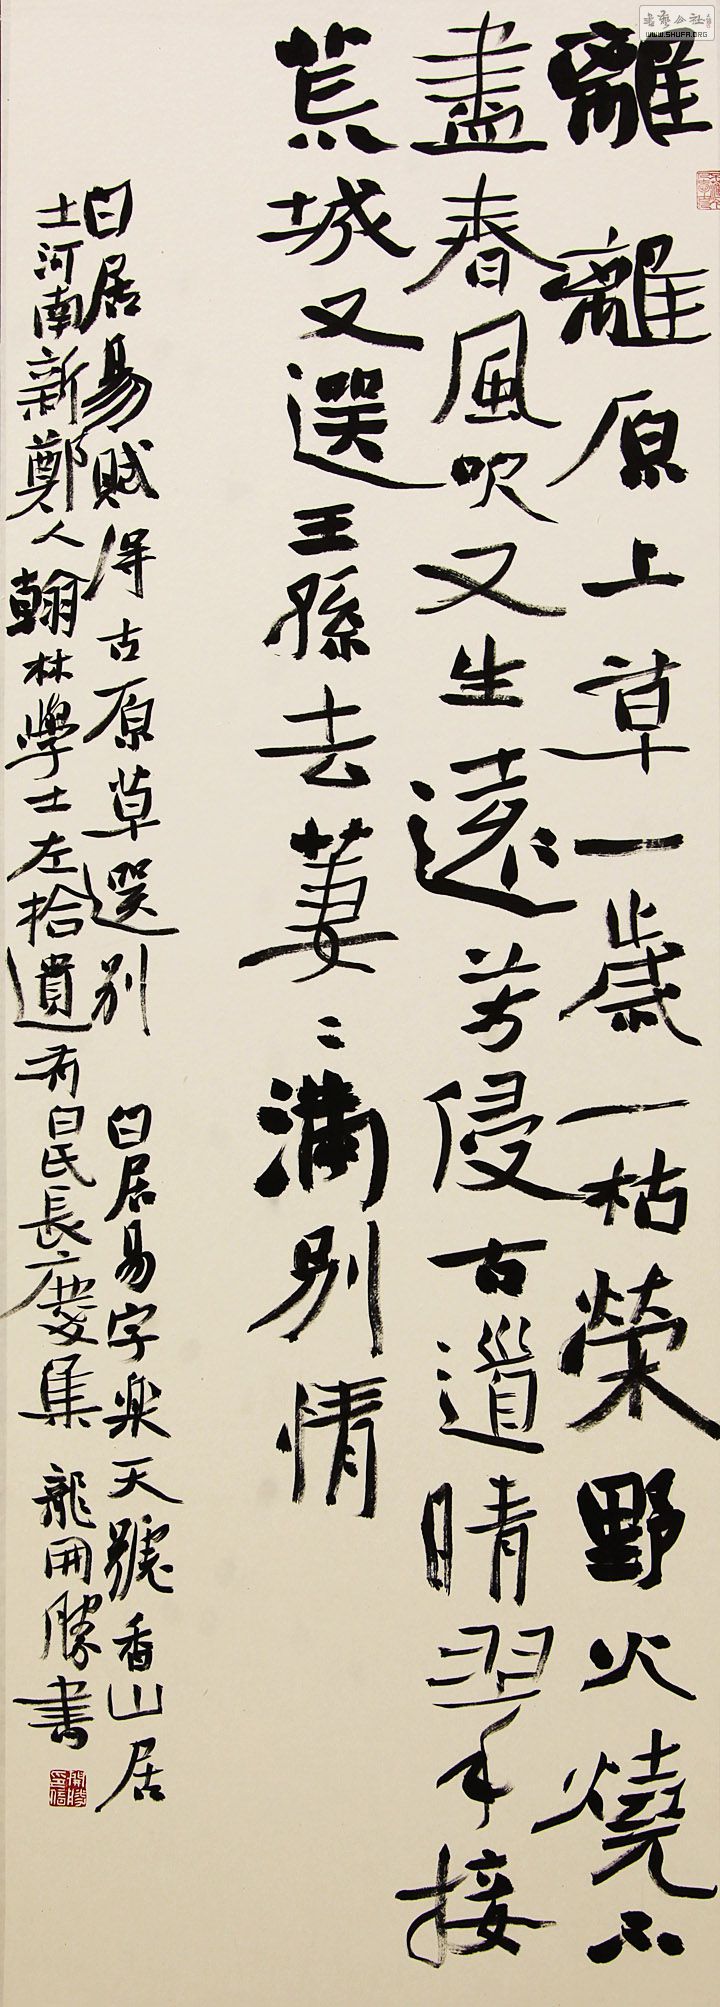 書藝公社
WWW.SHUFA.ORG
離離原上草一歲一枯榮野火燒不
盡春風吹又生遠芳侵古道晴翠接
荒城又選王孫去萋〻滿別情
白居易賦得古原草選別 白居易字樂天號香山居
士河南新鄭人翰林學士左拾遺有白氏長慶集 龍開勝書
開勝印信